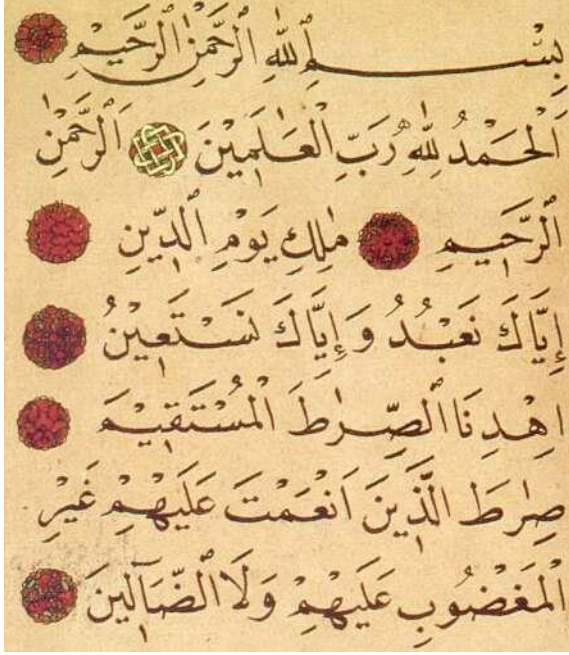 بِسْــــــمِ ٱللّٰهِ ٱلرَّحْمٰنِ ٱلرَّحِيمِ
اَلْحَمْدُ لِلّٰهِ رَبِّ ٱلْعَـٰلَمِيْنَ اَلرَّحْمٰنِ
ٱلرَّحِيمِ مٰلِكِ يَوْمِ ٱلدِّينِ
إِيَّاكَ نَعْبُدُ وَإِيَّاكَ نَسْتَعِينُ
اِهْدِنَا ٱلصِّرٰطَ ٱلْمُسْتَقِيْمَ
صِرٰطَ ٱلَّذِينَ اَنْعَمْتَ عَلَيْهِمْ غَيْرِ
ٱلْمَغْضُوبِ عَلَيْهِمْ وَلَا ٱلضَّآلِّينَ